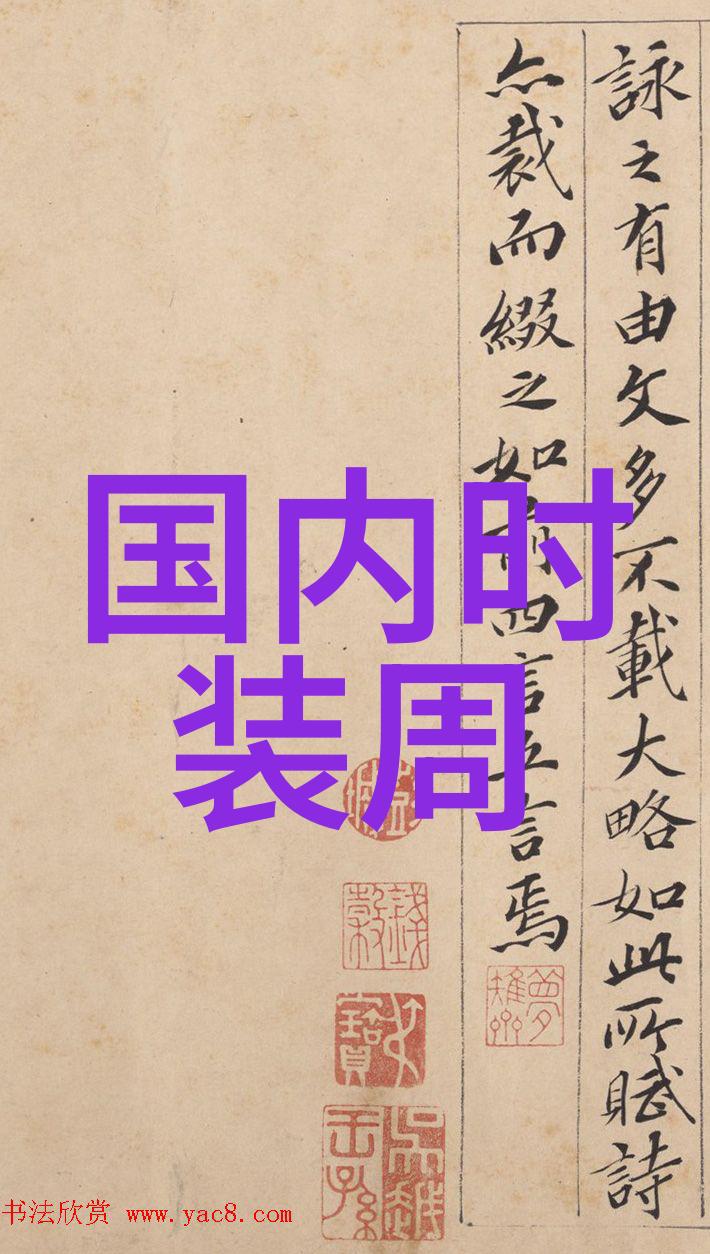 詠之有由文多不載大略如此所賦詩
亦裁而綴之如前四言五言焉
国内时
装周
书法欣赏 www.yac8.com